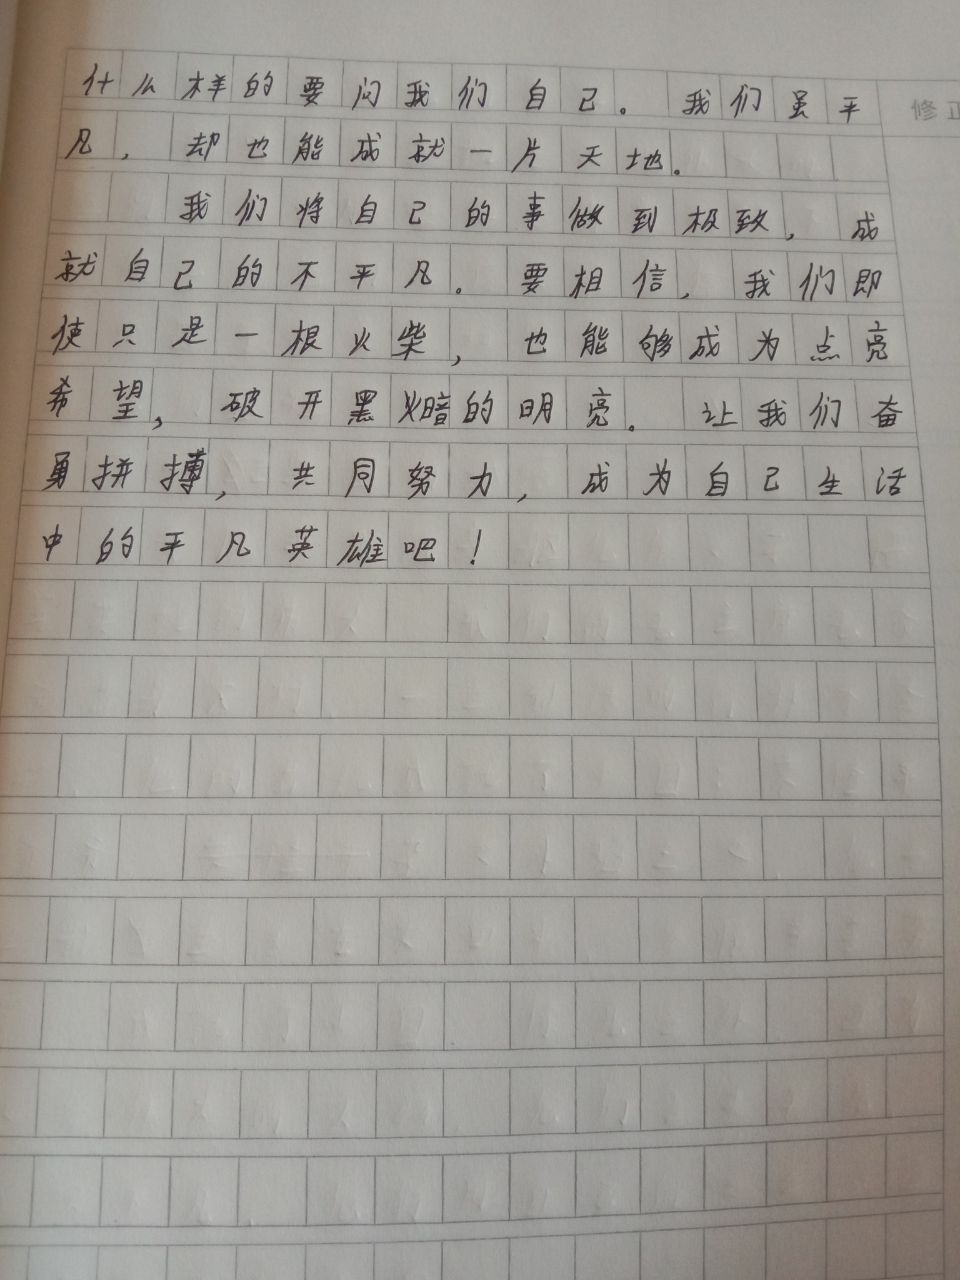 什么样的要问我们自己。我们虽平
修正
凡，却也能成就一片天地。
我们将自己的事做到极致，成
就自己的不平凡。要相信，我们即
使只是一根火柴，也能够成为点亮
希望，破开黑暗的明亮。让我们奋
勇拼搏，共同努力，成为自己生活
中的平凡英雄吧！